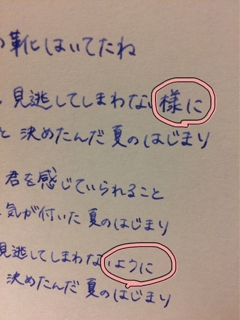 の靴はいてたね
見逃してしまわない様に
と 決めたんだ 夏のはじまり
君を感じていられること
気が付いた 夏のはじまり
見逃してしまわないように
決めたんだ 夏のはじまり